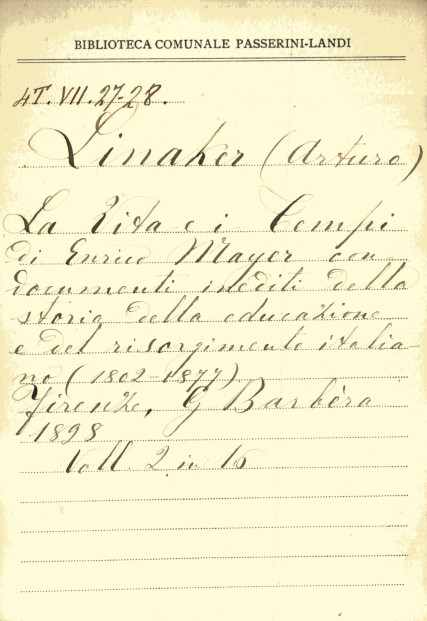 BIBLIOTECA COMUNALE PASSERINI-LANDI
4T. VII. 27-28.
Linaker (Arturo)
La Vita e i Tempi
di Enrico Mayer con
documenti inediti della
storia della educazione
e del risorgimento italia-
no (1802-1877)
Firenze, G Barbèra
1898
Voll. 2 in 16